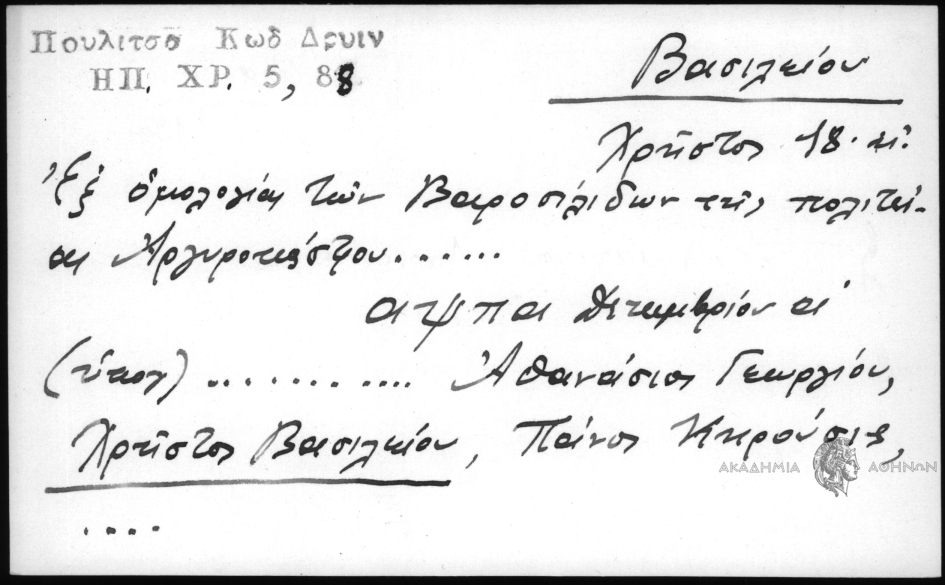 Πουλιτσα Κωδ Δρυιν
ΗΠ. ΧΡ. 5, 88
Βασιλείου
Χρῆστος 18. αἰ.
Ἐξ ὁμολογίας τῶν Βαροσλίδων τῆς πολιτεί-
ας Ἀργυροκάστρου......
αψπα Δεκεμβρίου α΄
(τύπογ) ............ Ἀθανάσιος Γεωργίου,
Χρῆστος Βασιλείου, Πάνος
....
ΑΚΑΔΗΜΙΑ ΑΘΗΝΩΝ